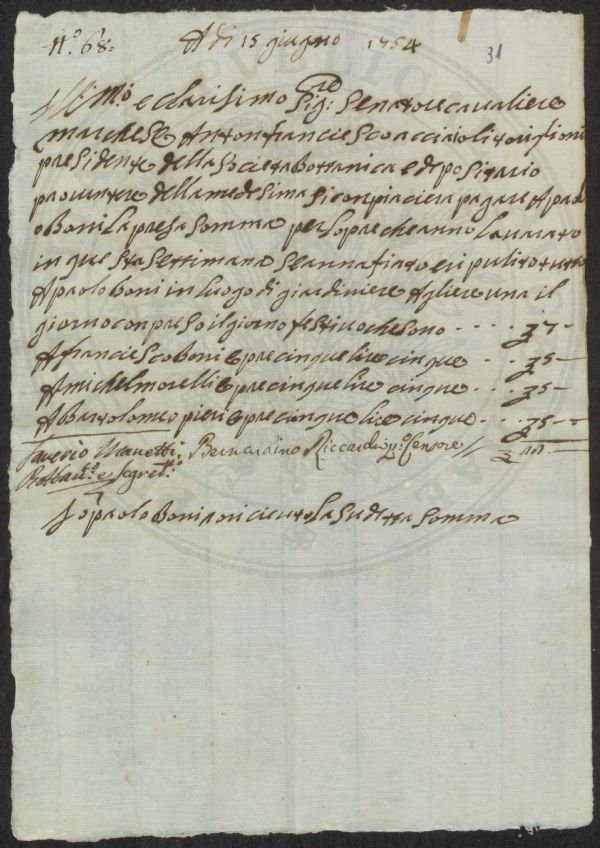 N.° 68:
A di 15 giugno 1754
31
Ill:mo e clarisimo Sig:re Senatore cavaliere
marchese Antonfranciesco acciaioli toriglioni
presidente della Societa Bottanica e depositario
provintere della medesima si conpiaciera pagare A paol
o Boni la presa somma per l opre che anno lavorato
in questa settimana Se annafiato e ri pulito tutto
A paolo boni in luogo di giardiniere A gliere una il
giorno conpreso il giorno festivo che sono 7
A franciesco boni opre cinque lire cinque 5
A michel morelli opre cinque lire cinque 5
A Bartolomeo pieri opre cinque lire cinque 5
Saverio Manetti Bernardino Riccardi p.° Censore 22
Bottan.° e Segret.°
Io paolo Boni o ricieuto la sudetta somma
PUBLIC